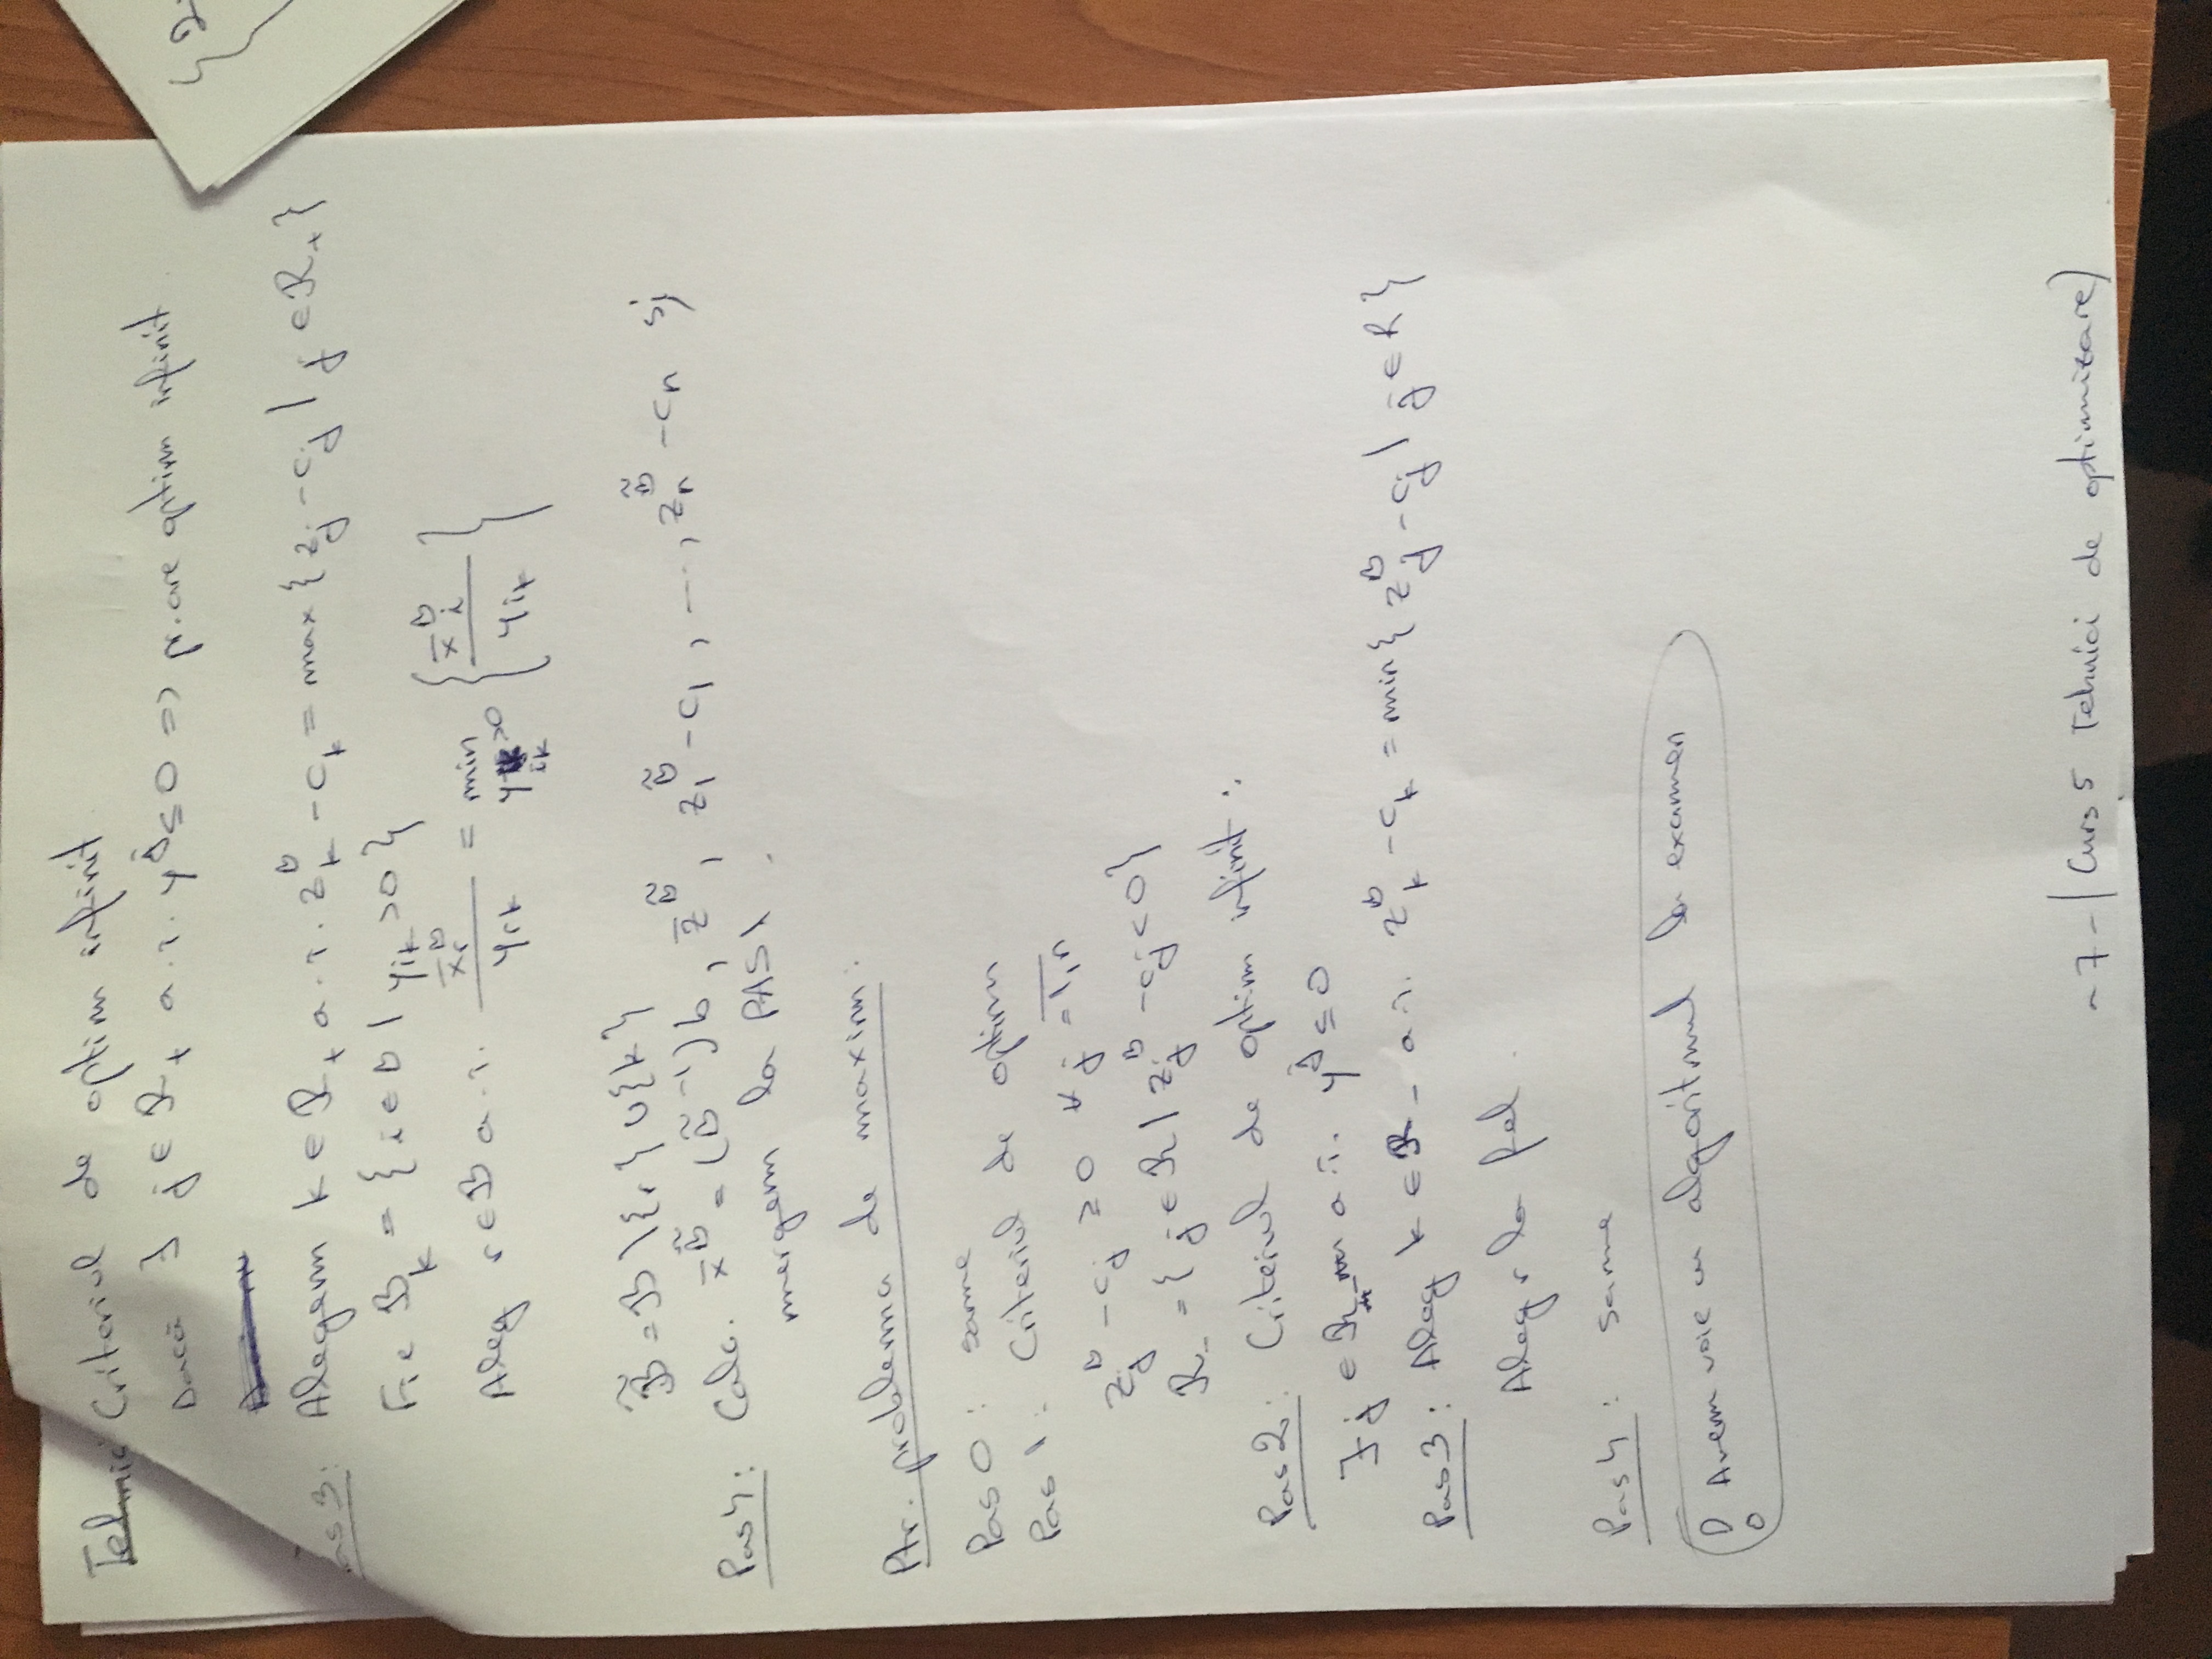 Criteriul de optim infinit
Dacă ∃ j ∈ R₊ a.î. yʲ ≤ 0 => pr. are optim infinit
Pas 3: Alegem k ∈ R₊ a.î. z_k^B - c_k = max { z_j - c_j | j ∈ R₊ }
Fie B_k = { i ∈ B | y_ik > 0 }
Aleg r ∈ B a.î. x̄_r^B / y_rk = min_{y_ik > 0} { x̄_i^B / y_ik }
B̃ = B \ {r} ∪ {k}
Pas 4: Calc. x̄^B̃ = (B̃⁻¹) b, z̄^B̃, z_1^B̃ - c_1, ..., z_n^B̃ - c_n și
mergem la PAS 1.
Pt. problema de maxim:
Pas 0: same
Pas 1: Criteriul de optim
z_j^B - c_j ≥ 0 ∀ j = 1,n
R₋ = { j ∈ R | z_j^B - c_j < 0 }
Pas 2: Criteriul de optim infinit:
∃ j ∈ R₋ a.î. yʲ ≤ 0
Pas 3: Aleg k ∈ R₋ a.î. z_k^B - c_k = min { z_j^B - c_j | j ∈ R }
Aleg r la fel.
Pas 4: same
! Avem voie cu algoritmul la examen
- 7 - | Curs 5 Tehnici de optimizare)